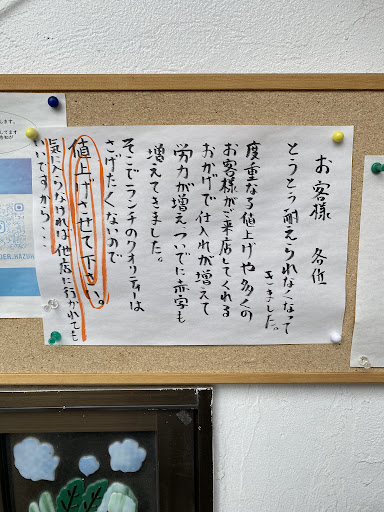 お客様 各位
とうとう耐えられなくなって
きました。
度重なる値上げや多くの
お客様がご来店してくれる
おかげで仕入れが増えて
労力が増えついでに赤字も
増えてきました。
そこでランチのクオリティーは
さげたくないので
値上げさせて下さい。
気に入らなければ他店に行かれても
いいですから・・・